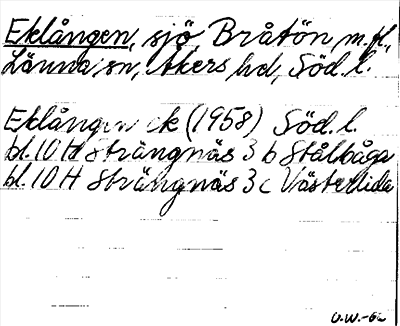 Eklången, sjö Bråtön m.fl.,
Länna sn, Åkers hd, Söd.l.
Eklången ek (1958) Söd.l.
bl.10 H Strängnäs 3 b Stålbåga
bl.10 H Strängnäs 3 c Västerlida